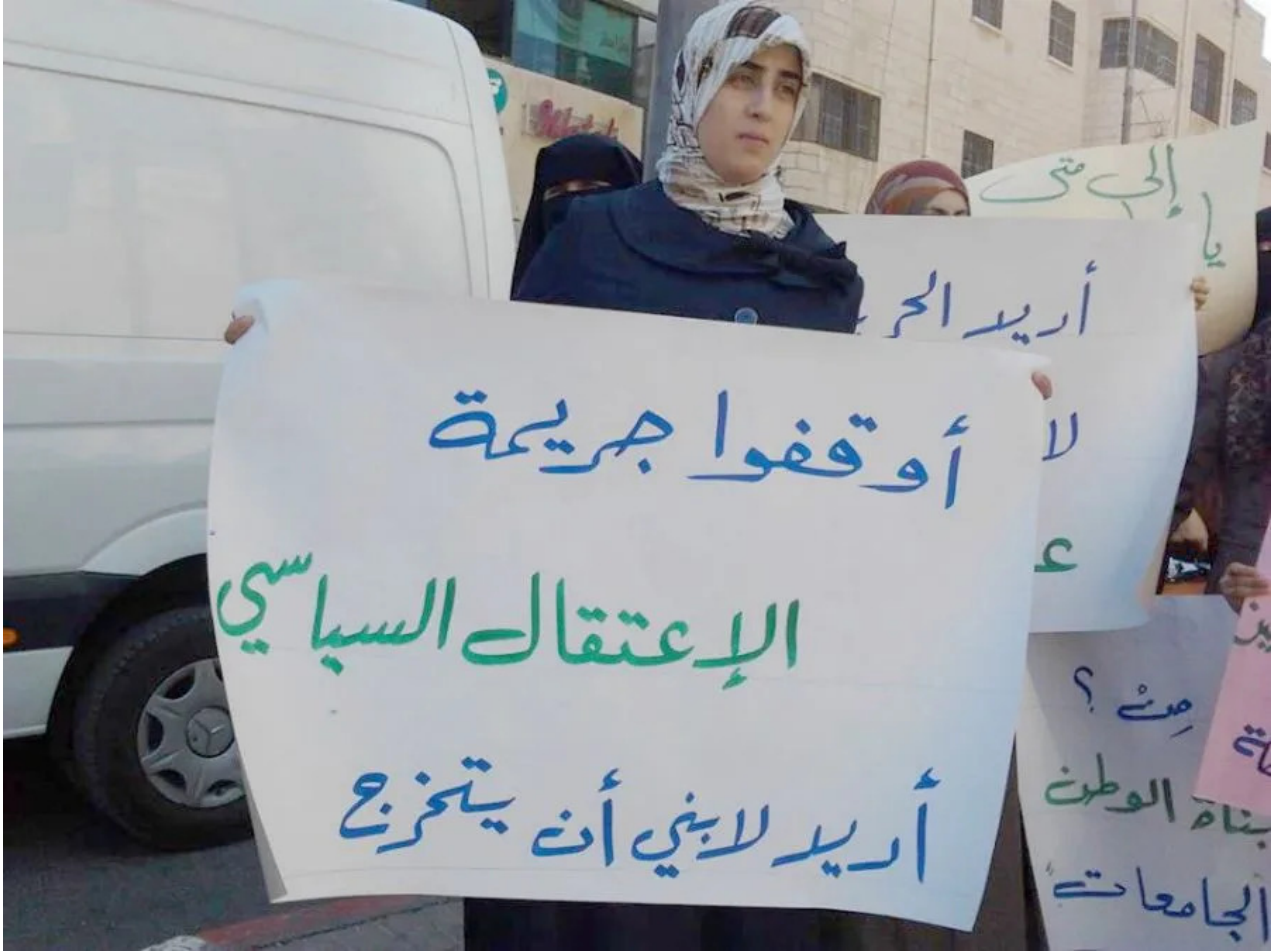 أوقفوا جريمة
الإعتقال السياسي
أريد لابني أن يتخرج
إلى متى
أريد
لا
من ؟
بناة الوطن
الجامعات